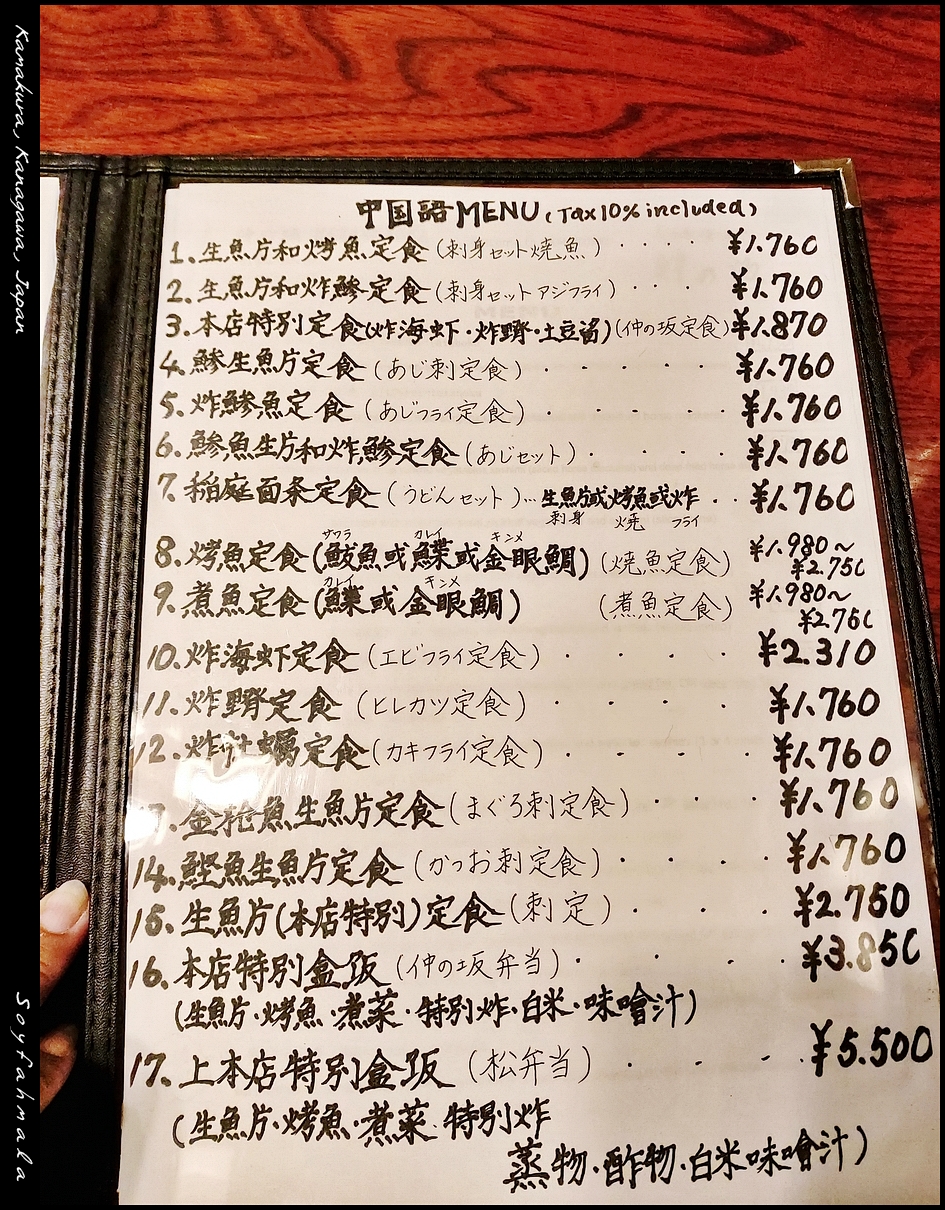 Kamakura, Kanagawa, Japan
Soyfahmala
中国語MENU(Tax10%included)
1. 生魚片和烤魚定食(刺身セット焼魚)････¥1.760
2. 生魚片和炸鰺定食(刺身セットアジフライ)･･･¥1.760
3. 本店特別定食(炸海虾・炸野・土豆酱)(仲の坂定食)¥1.870
4. 鰺生魚片定食(あじ刺定食)･････¥1.760
5. 炸鰺魚定食(あじフライ定食)･････¥1.760
6. 鰺魚生片和炸鰺定食(あじセット)･････¥1.760
7. 稲庭面条定食(うどんセット)…生魚片或烤魚或炸･･¥1.760
刺身 焼 フライ
サワラ カレイ キンメ
8. 烤魚定食(鮁魚或鰈或金眼鯛)(焼魚定食)¥1.980~
¥2.750
カレイ キンメ
9. 煮魚定食(鰈或金眼鯛)(煮魚定食)¥1.980~
¥2.750
10. 炸海虾定食(エビフライ定食)････¥2.310
11. 炸野定食(ヒレカツ定食)････¥1.760
12. 炸牡蠣定食(カキフライ定食)････¥1.760
13. 金枪魚生魚片定食(まぐろ刺定食)･･･¥1.760
14. 鰹魚生魚片定食(かつお刺定食)････¥1.760
15. 生魚片(本店特別)定食(刺定)････¥2.750
16. 本店特別盒饭(仲の坂弁当)････¥3.850
(生魚片・烤魚・煮菜・特別炸・白米・味噌汁)
17. 上本店特別盒饭(松弁当)････¥5.500
(生魚片・烤魚・煮菜 特別炸
蒸物・酢物・白米味噌汁)